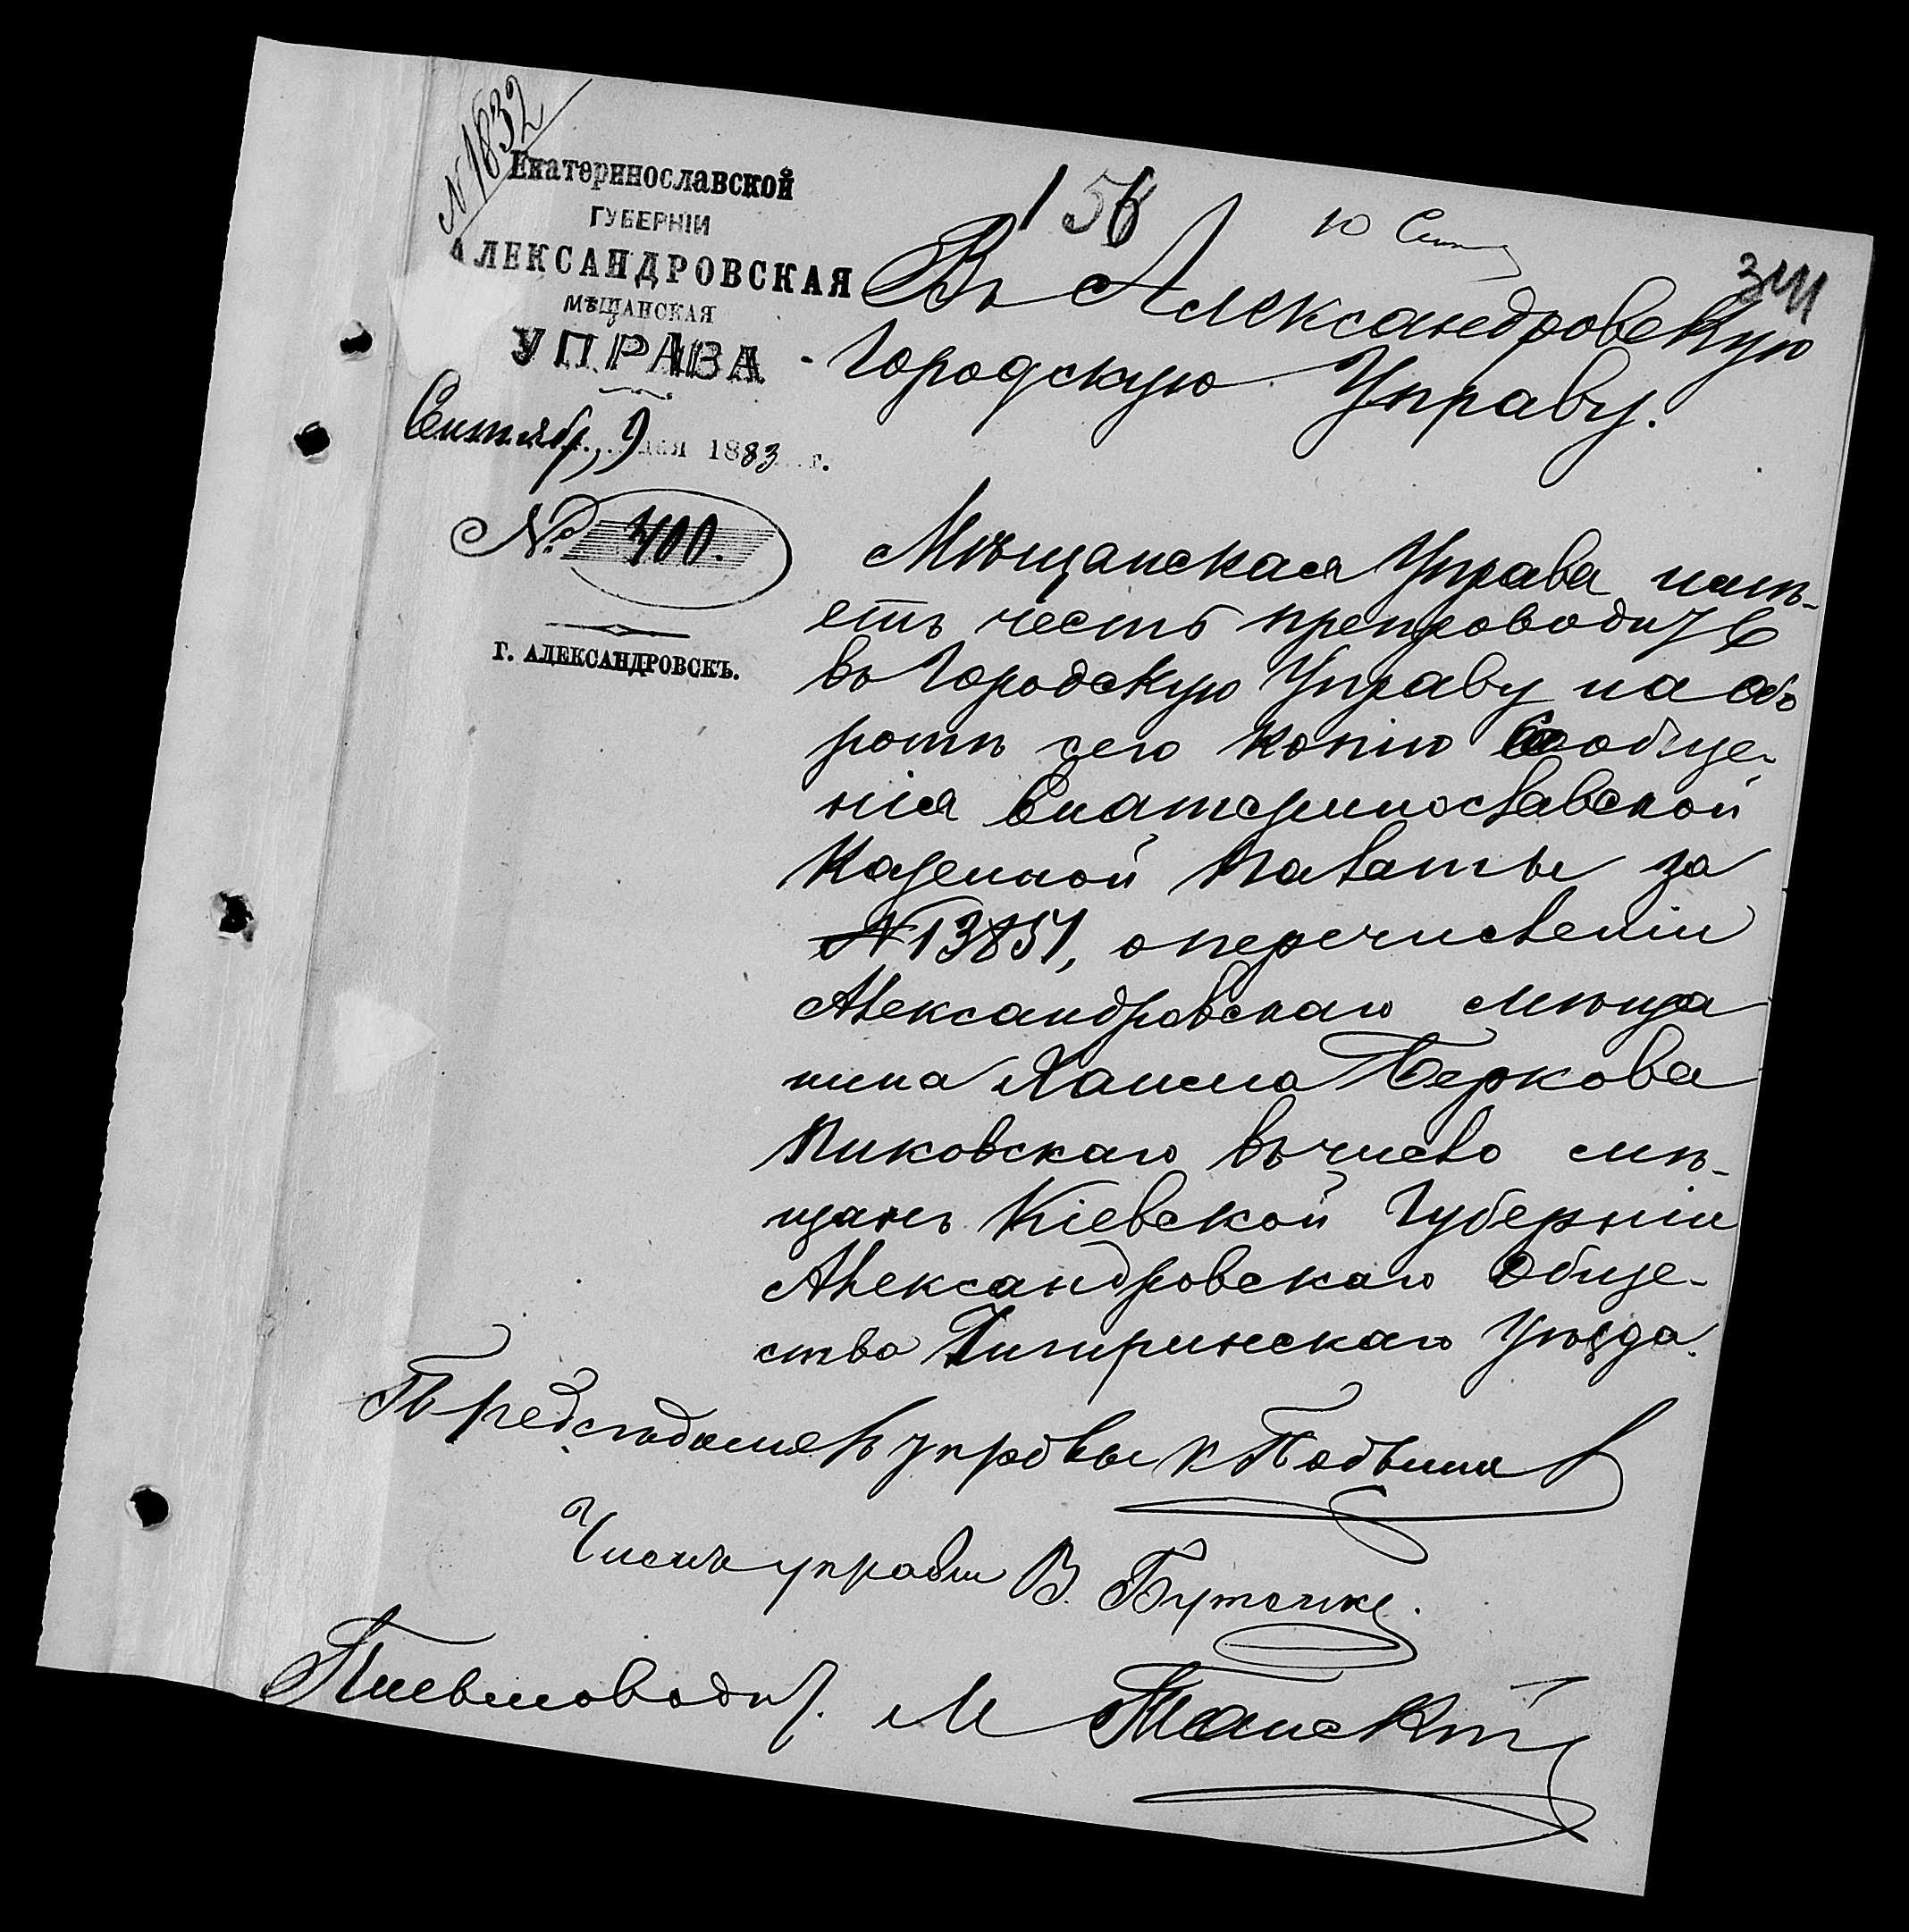 N 1832
Екатеринославской
ГУБЕРНІИ
АЛЕКСАНДРОВСКАЯ
МѢЩАНСКАЯ
УПРАВА
Сентябр, 9 дня 1883 г.
№ 400.
Г. АЛЕКСАНДРОВСКЪ.
10 Сент
Въ Александровскую
Городскую Управу.
Мѣщанская Управа имѣ-
етъ честь препроводить
въ Городскую Управу на обо
ротѣ сего копію Сообще-
нія Екатеринославской
Казенной Палаты за
N 13851, о перечисленіи
Александровскаго мѣща
нина Хаима Беркова
Пиковскаго въ число мѣ-
щанъ Кіевской Губерніи
Александровскаго Обще-
ства Чигиринскаго Уѣзда.
Предсѣдатель управы
Членъ управы В. Бутенко.
Письмовод. М Танскій